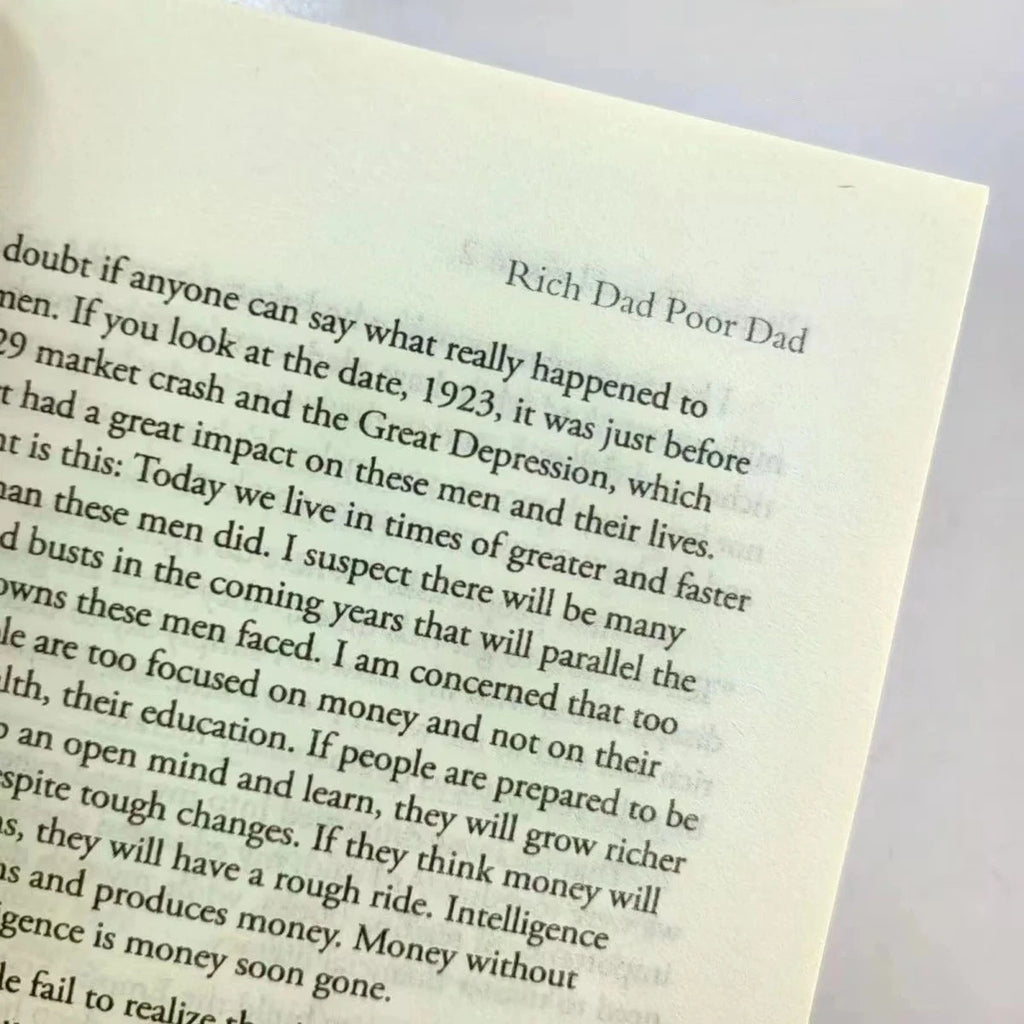 Rich Dad Poor Dad
doubt if anyone can say what really happened to
men. If you look at the date, 1923, it was just before
29 market crash and the Great Depression, which
t had a great impact on these men and their lives.
nt is this: Today we live in times of greater and faster
han these men did. I suspect there will be many
d busts in the coming years that will parallel the
owns these men faced. I am concerned that too
le are too focused on money and not on their
lth, their education. If people are prepared to be
p an open mind and learn, they will grow richer
spite tough changes. If they think money will
ms, they will have a rough ride. Intelligence
ms and produces money. Money without
igence is money soon gone.
le fail to realize